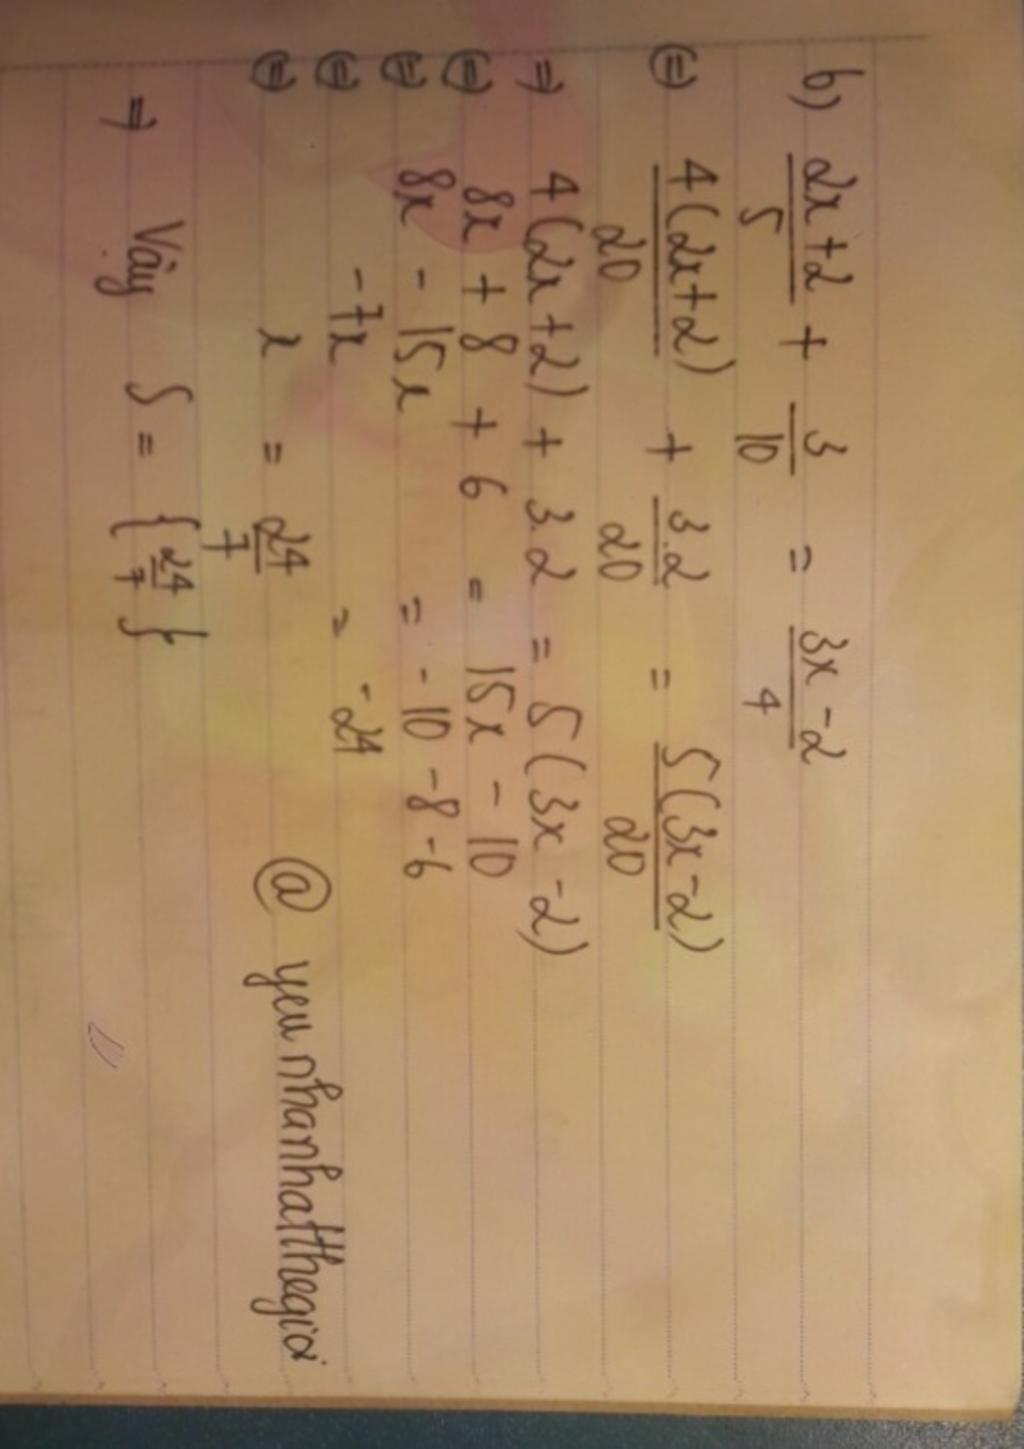 b) \frac{2x+2}{5} + \frac{3}{10} = \frac{3x-2}{4}
⇔ \frac{4(2x+2)}{20} + \frac{3.2}{20} = \frac{5(3x-2)}{20}
⇒ 4(2x+2) + 3.2 = 5(3x-2)
⇔ 8x + 8 + 6 = 15x - 10
⇔ 8x - 15x = -10 -8 -6
⇔ -7x = -24
⇔ x = \frac{24}{7} @ yeunhanhatthegioi
⇒ Vậy S = {\frac{24}{7}}